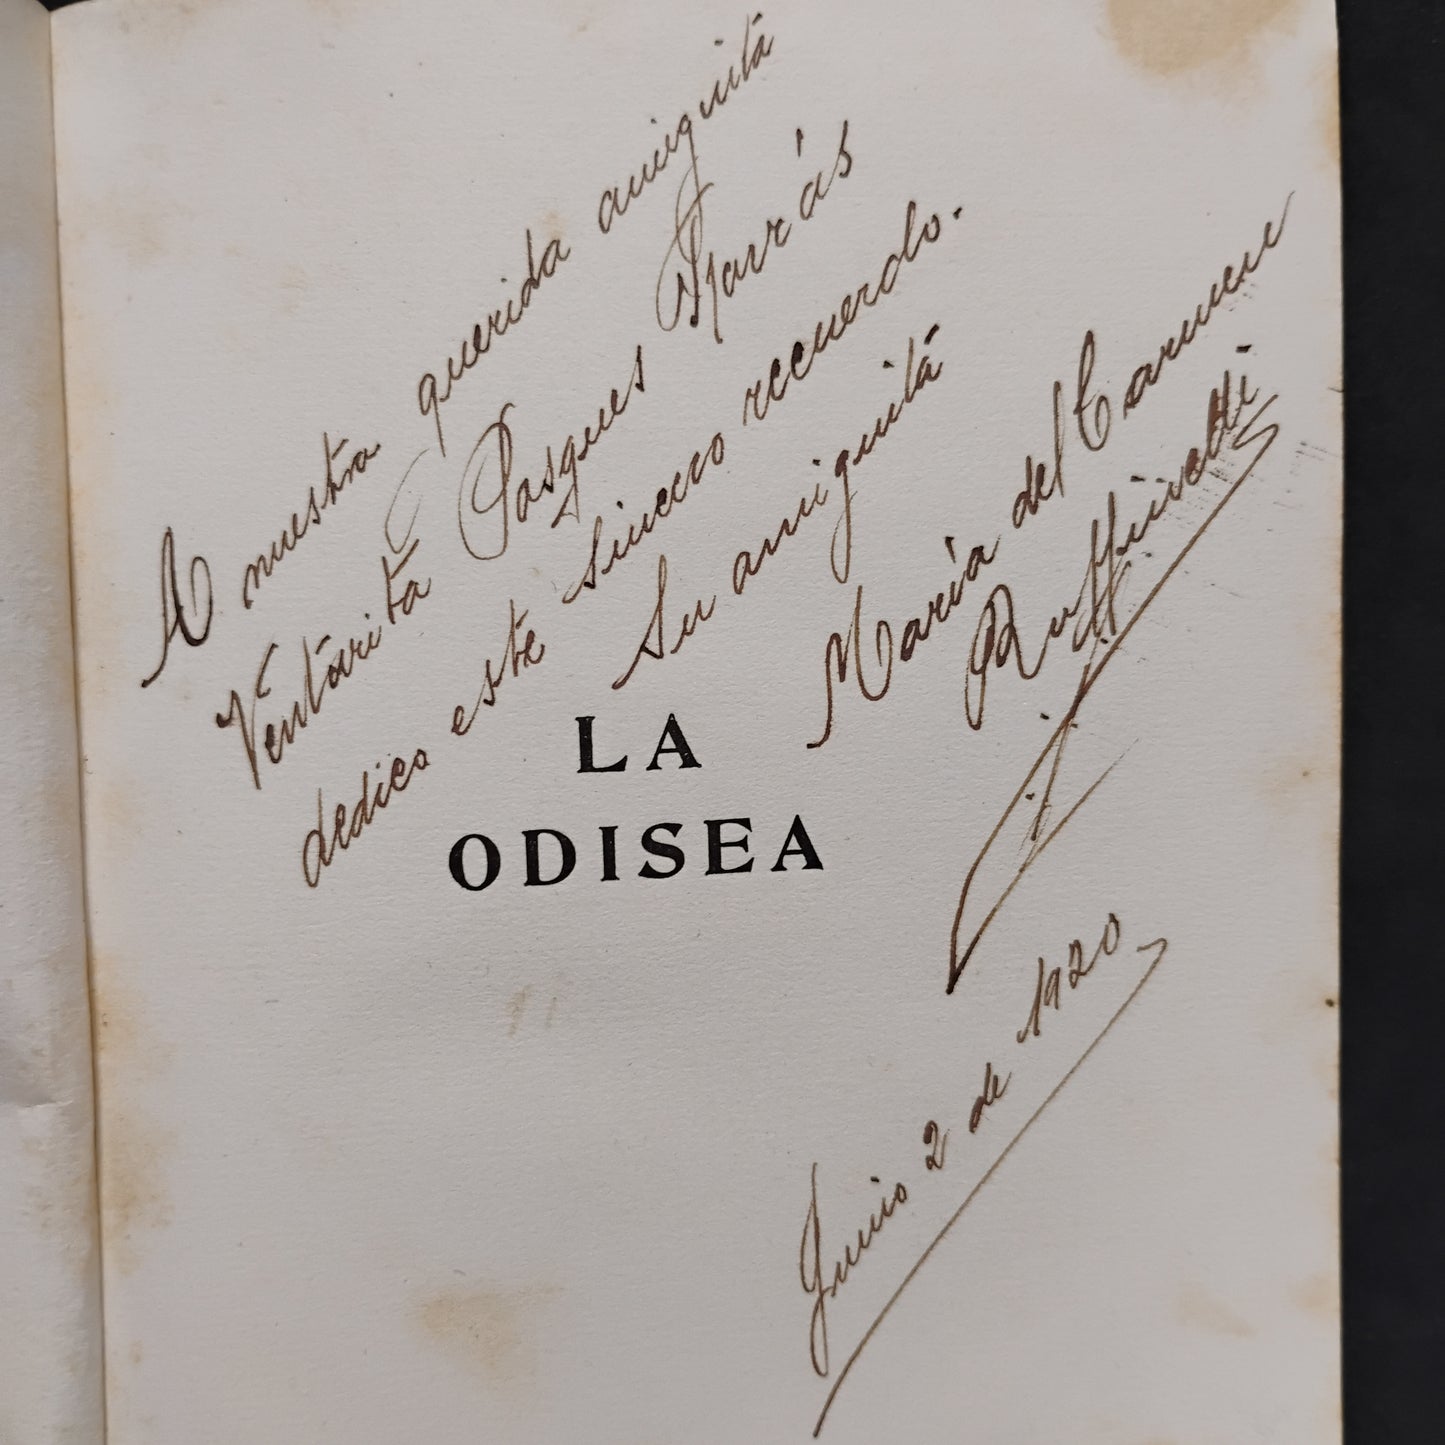 A nuestra querida amiguita
Venturita Pasques
dedico este sincero recuerdo.
Su amiguita
María del Carmen
Ruffinelli
LA
ODISEA
Junio 2 de 1920